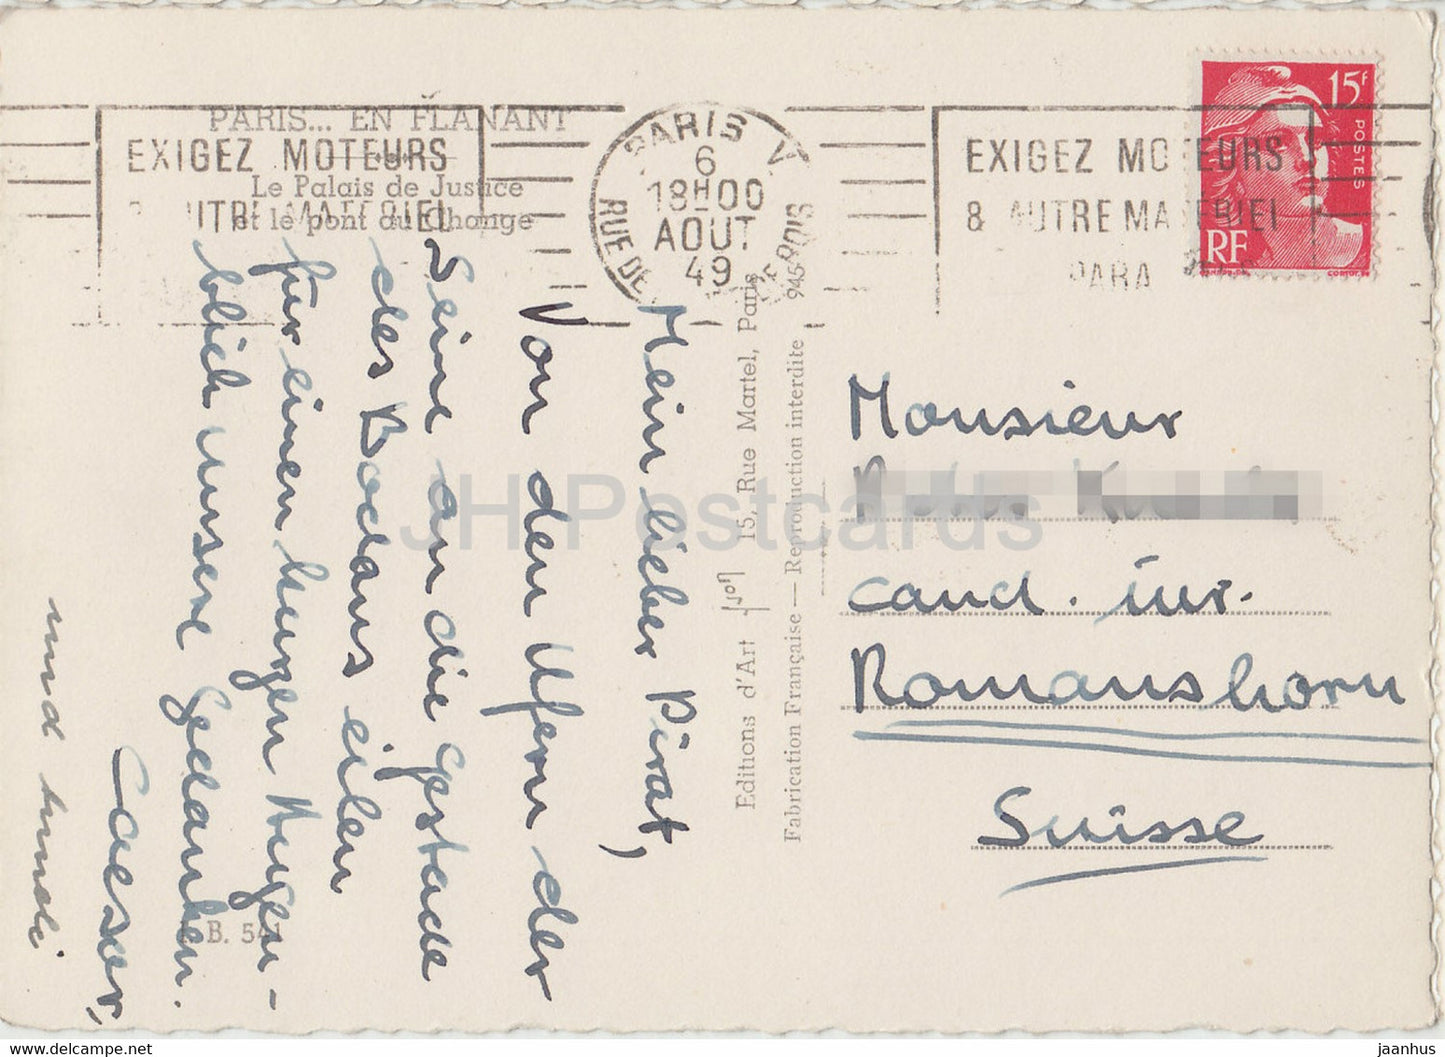 PARIS... EN FLANANT
Le Palais de Justice
et le pont au Change
EXIGEZ MOTEURS
& AUTRE MATERIEL
PARIS V
6
18H00
AOUT
49
RUE DE
EXIGEZ MOTEURS
& AUTRE MATERIEL
PARA
15F
POSTES
RF
Mein lieber Pirat,
Von den Ufern der
Seine an die Gestade
des Bodans eilen
für einen kurzen Augen-
blick unsere Gedanken.
Caesar,
und
Editions d'Art Yvon 15, Rue Martel, Paris
Fabrication Française — Reproduction interdite 945
B. 54
Monsieur
cand. iur.
Romanshorn
Suisse
JH Postcards
jaanhus